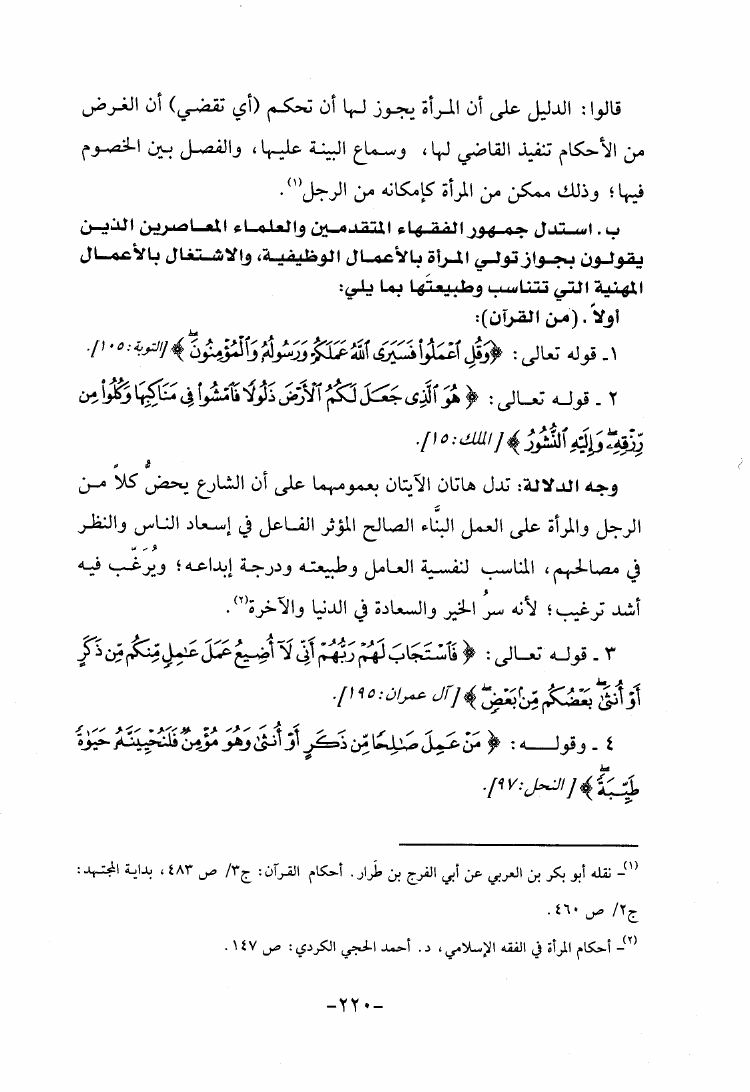 قالوا: الدليل على أن المرأة يجوز لها أن تحكم (أي تقضي) أن الغرض
من الأحكام تنفيذ القاضي لها، وسماع البينة عليها، والفصل بين الخصوم
فيها؛ وذلك ممكن من المرأة كإمكانه من الرجل(١).
ب. استدل جمهور الفقهاء المتقدمين والعلماء المعاصرين الذين
يقولون بجواز تولي المرأة بالأعمال الوظيفية، والاشتغال بالأعمال
المهنية التي تتناسب وطبيعتَها بما يلي:
أولاً. (من القرآن):
١- قوله تعالى: ﴿وَقُلِ ٱعْمَلُوا۟ فَسَيَرَى ٱللَّهُ عَمَلَكُمْ وَرَسُولُهُۥ وَٱلْمُؤْمِنُونَ ۖ﴾ [التوبة:١٠٥].
٢ - قوله تعالى: ﴿ هُوَ ٱلَّذِى جَعَلَ لَكُمُ ٱلْأَرْضَ ذَلُولًا فَٱمْشُوا۟ فِى مَنَاكِبِهَا وَكُلُوا۟ مِن
رِّزْقِهِۦ ۖ وَإِلَيْهِ ٱلنُّشُورُ ﴾ [الملك:١٥].
وجه الدلالة: تدل هاتان الآيتان بعمومهما على أن الشارع يحضُّ كلاً من
الرجل والمرأة على العمل البنَّاء الصالح المؤثر الفاعل في إسعاد الناس والنظر
في مصالحهم، المناسب لنفسية العامل وطبيعته ودرجة إبداعه؛ ويُرَغّب فيه
أشد ترغيب؛ لأنه سرُ الخير والسعادة في الدنيا والآخرة(٢).
٣ - قوله تعالى: ﴿ فَٱسْتَجَابَ لَهُمْ رَبُّهُمْ أَنِّى لَآ أُضِيعُ عَمَلَ عَٰمِلٍ مِّنكُم مِّن ذَكَرٍ
أَوْ أُنثَىٰ ۖ بَعْضُكُم مِّنۢ بَعْضٍ ۖ ﴾ [آل عمران:١٩٥].
٤ - وقوله: ﴿ مَنْ عَمِلَ صَٰلِحًا مِّن ذَكَرٍ أَوْ أُنثَىٰ وَهُوَ مُؤْمِنٌ فَلَنُحْيِيَنَّهُۥ حَيَوٰةً
طَيِّبَةً ۖ ﴾ [النحل:٩٧].
(١)- نقله أبو بكر بن العربي عن أبي الفرج بن طَرار. أحكام القرآن: ج٣/ ص ٤٨٣، بداية المجتهد:
ج٢/ ص ٤٦٠.
(٢)- أحكام المرأة في الفقه الإسلامي، د. أحمد الحجي الكردي: ص ١٤٧.
-٢٢٠-